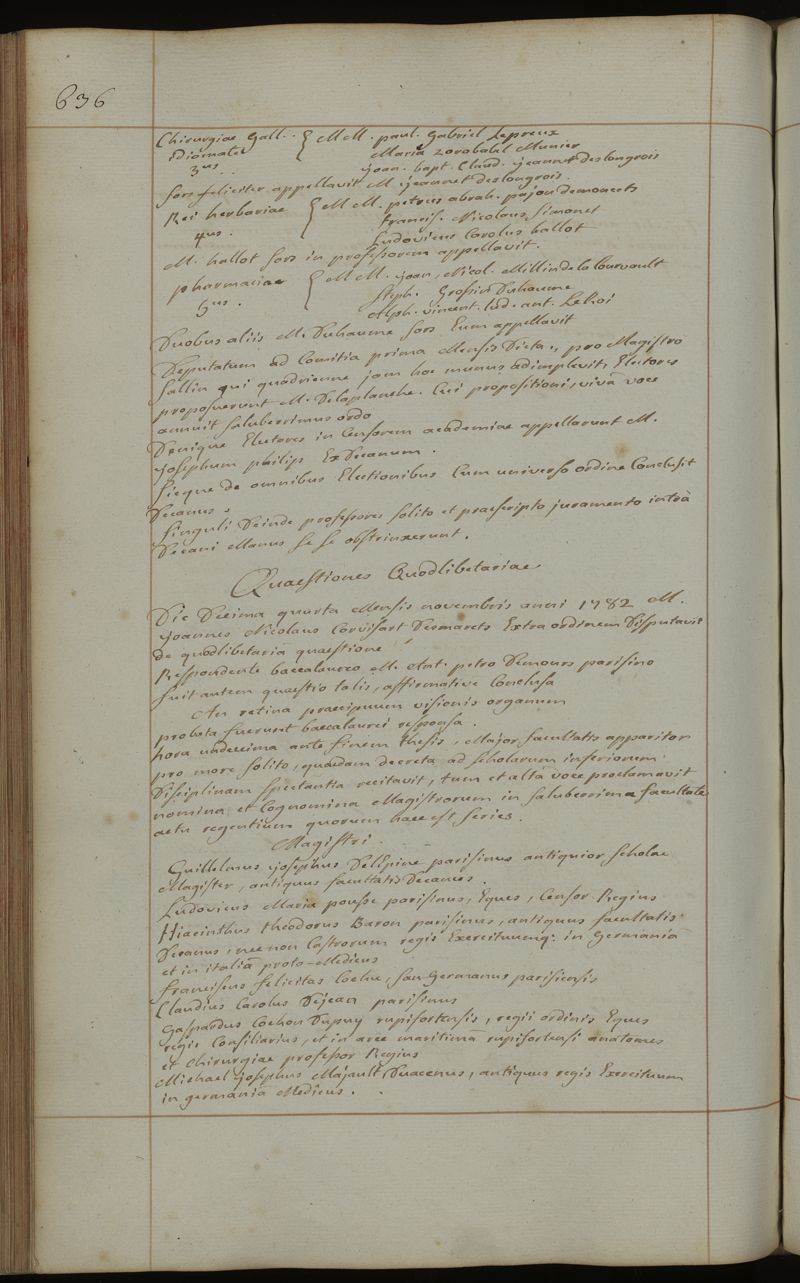 636
Chirurgiae Gall. { MM. paul. Gabriel Lepreux
idiomate Maria Zorobabel Munier
3us. joan. bapt. Claud. jeannet deslongrois
sors feliciter appellavit M. jeannet deslongrois.
Rei herbariae { MM. petrus abrah. pajon demoncets
4us. francis. Nicolaus Simonet
Ludovicus Carolus hallot
M. hallot sors in professorem appellavit.
pharmaciae { MM. joan. Nicol. Millin de la Courvault
5us. steph. Grossin Duhaume
Alph. vincent. Lud. ant. LeRoi
Duobus aliis M. Duhaume sors Eum appellavit
Deputatum ad Comitia prima Mensis Dicta, pro Magistro
Sallin qui quadrienne jam hoc munus adimplevit, Electores
proposuerunt M. Delaplanche. Cui propositioni, vivâ voce
annuit saluberrimus ordo
Denique Electores in Censorem academiae appellarunt M.
josephum philip ExDecanum.
sicque de omnibus Electionibus Cum universo ordine Conclusit
Decanus.
singuli Deinde professores solito et praescripto juramento intrà
Decani Manus se se obstrinxerunt.
Quaestiones Quodlibetariae
Die Decima quarta Mensis novembris anni 1782 M.
joannes Nicolaus Corvisart Desmarets Extra ordinem Disputavit
de quodlibetariâ quaestione
Respondente baccalaureo M. Ant. petro Demours parisino
fuit autem quaestio talis, affirmativè Conclusa
An retina praecipuum visionis organum
probata fuerunt baccalaurei responsa.
hora undecima ante finem thesis, Major facultatis apparitor
pro more solito, quaedam decreta ad scholarum inferiorum
Disciplinam spectantia recitavit, tum et altâ voce proclamavit
nomina et Cognomina Magistrorum in saluberrimâ facultate
actu regentium quorum haec est series.
Magistri.
Guillelmus josephus DelEpine parisinus antiquior scholae
Magister, antiquus facultatis Decanus.
Ludovicus Maria pousse parisinus, Eques, Censor Regius
Hiacinthus theodorus Baron parisinus, antiquus facultatis
Decanus, nec non Castrorum regis Exercituumq. in Germaniâ
et in italiâ proto-Medicus
franciscus felicitas Cochu, san-Germanus parisiensis
Claudius Carolus Dejean parisinus
Gaspardus Cochon Dupuy rupifortensis, regii ordinis Eques
regis Consiliarius, et in arce maritimâ rupifortensi anatomes
et Chirurgiae professor Regius
Michael josephus Majault Duacenus, antiquus regis Exercituum
in germaniâ Medicus.